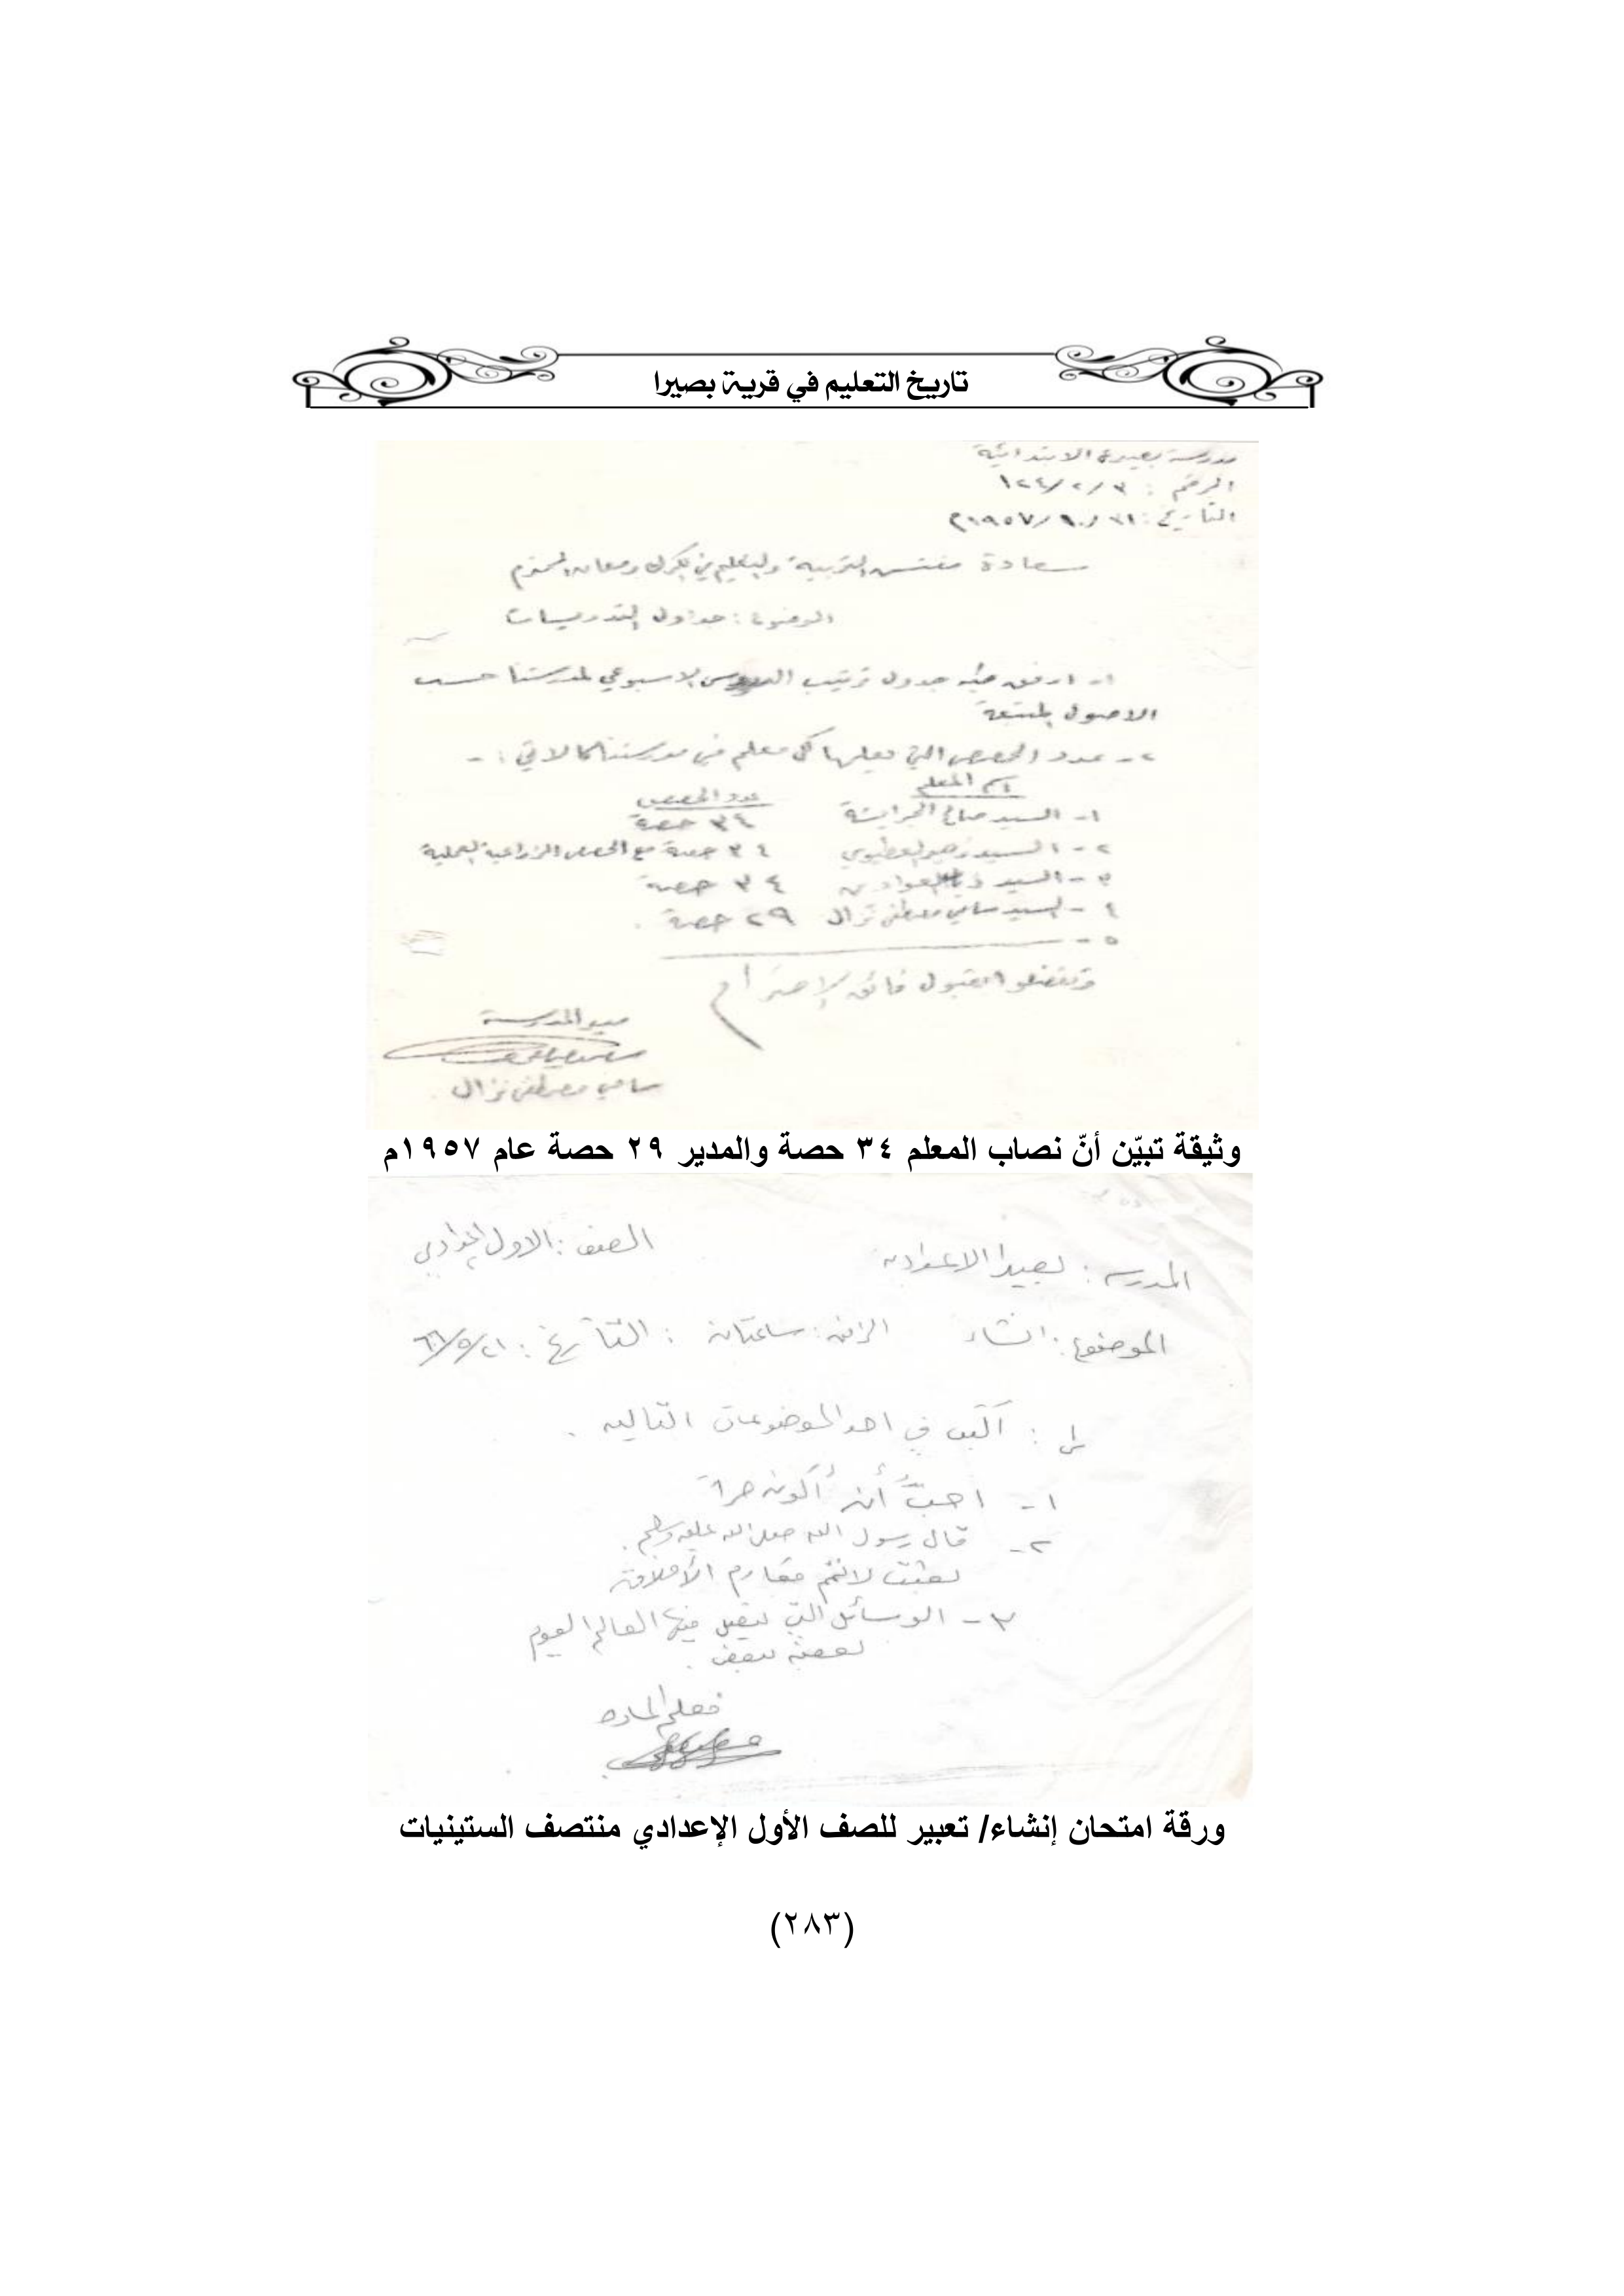 تاريخ التعليم في قرية بصيرا
مدرسة بصيرة الابتدائية
الرقم : ٣/٢/١٢٤
التاريخ : ٣١/١٠/١٩٥٧م
سعادة مفتش التربية والتعليم في الكرك ومعان المحترم
الموضوع : جداول التدريسات
١- ارفق طيه جدول ترتيب الدروس الاسبوعي لمدرستنا حسب
الاصول المتبعة
٢- عدد الحصص التي يعلمها كل معلم في مدرستنا كالاتي :-
اسم المعلم عدد الحصص
١- السيد صالح الجرايشة ٣٤ حصة
٢- السيد زهير العطيوي ٣٤ حصة مع الحصص الزراعية العملية
٣- السيد ٣٤ حصة
٤- السيد سامي مصطفى نزال ٢٩ حصة .
٥-
وتفضلوا بقبول فائق الاحترام
مدير المدرسة
سامي مصطفى نزال
وثيقة تبيّن أنّ نصاب المعلم ٣٤ حصة والمدير ٢٩ حصة عام ١٩٥٧م
المدرسه : بصيرا الاعداديه الصف : الاول الاعدادي
الموضوع : انشاء الزمن : ساعتان : التأريخ : ٢١/٥/٦٦
س١ : أكتب في احد الموضوعات التاليه .
١- احبُّ أن أكون حراً
٢- قال رسول الله صلى الله عليه وسلم .
بعثت لاتمم مكارم الأخلاق
٣- الوسائل التي يتصل فيها العالم اليوم
بعضه ببعض .
معلم الماده
ورقة امتحان إنشاء/ تعبير للصف الأول الإعدادي منتصف الستينيات
(٢٨٣)